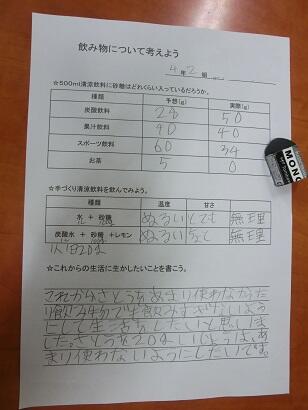 飲み物について考えよう
4年2組
☆500ml清涼飲料に砂糖はどれくらい入っているだろうか。
種類 予想(g) 実際(g)
炭酸飲料 28 50
果汁飲料 90 40
スポーツ飲料 60 34
お茶 5 0
☆手づくり清涼飲料を飲んでみよう。
種類 温度 甘さ
水 + 砂糖 ぬるい とても 無理
炭酸水 + 砂糖 +レモン ぬるい 無理
1人1日20g
☆これからの生活に生かしたいことを書こう。
これからさとうをあまり使わなかった
り飲み物でも飲みすぎないよう
にして生活をしたいと思いま
した。さとうを20gいじょうは、あ
まり使わないようにしたいです。
MONO